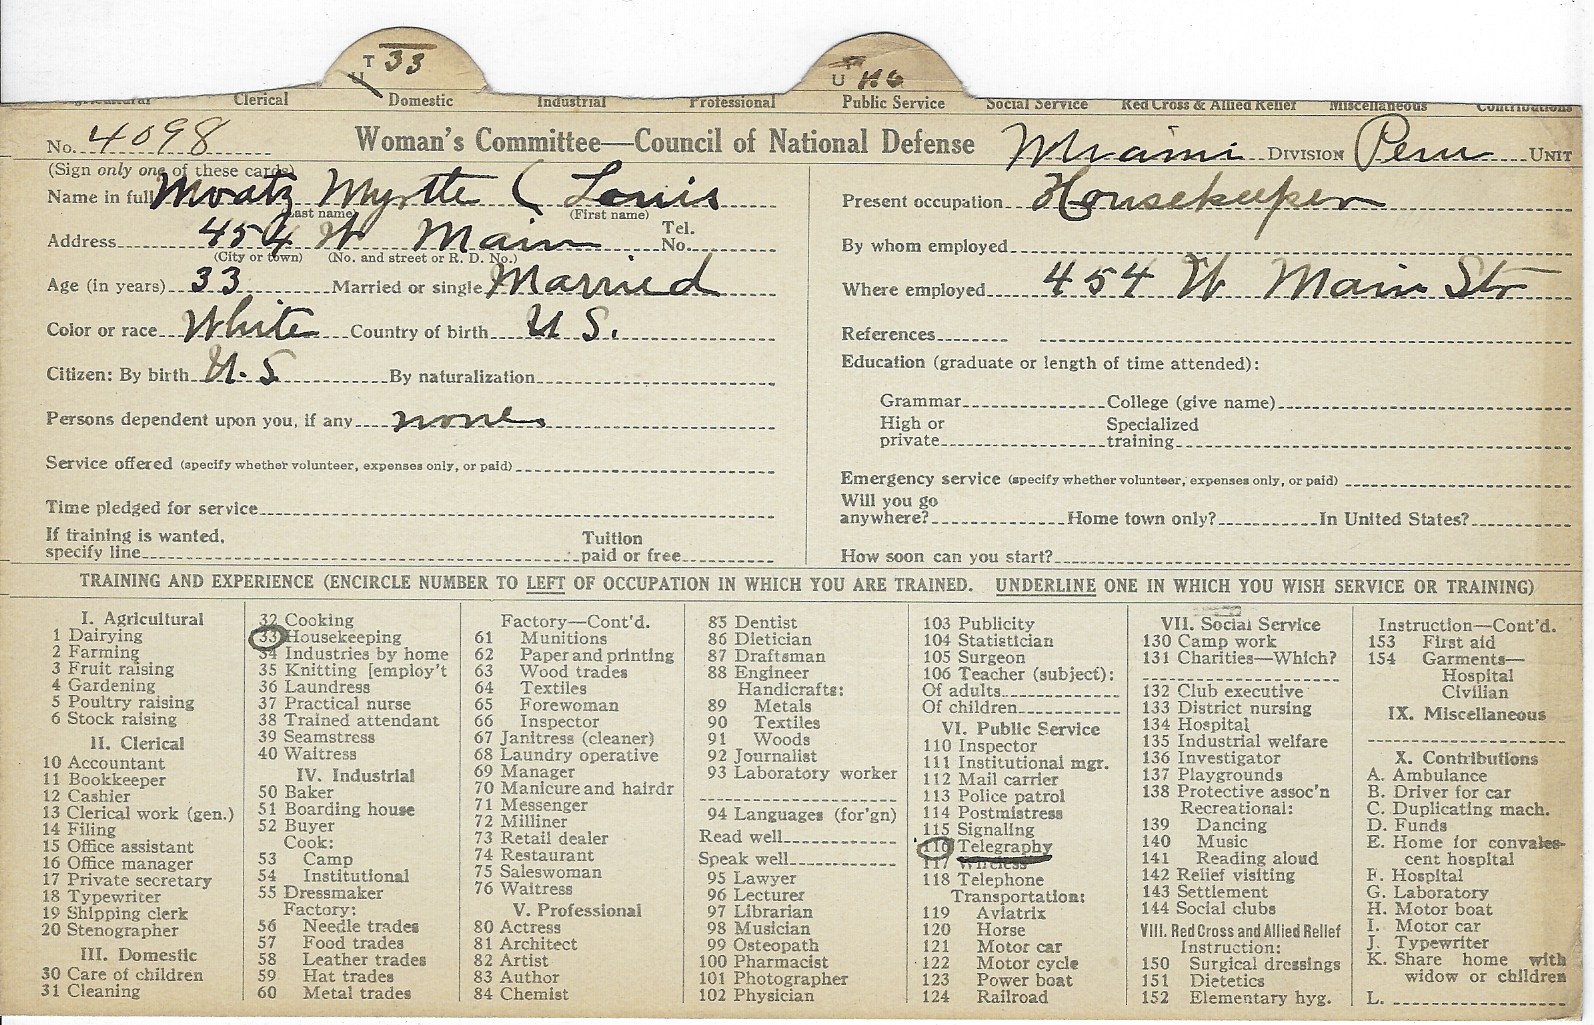 T 33
U
U 116
Agricultural Clerical Domestic Industrial Professional Public Service Social Service Red Cross & Allied Relief Miscellaneous Contributions
No. 4098 Woman's Committee—Council of National Defense Miami DIVISION Peru UNIT
(Sign only one of these cards)
Name in full Moatz Myrtle ( Louis
(Last name) (First name)
Address 454 W Main Tel. No.
(City or town) (No. and street or R. D. No.)
Age (in years) 33 Married or single Married
Color or race White Country of birth U.S.
Citizen: By birth U.S By naturalization
Persons dependent upon you, if any none
Service offered (specify whether volunteer, expenses only, or paid)
Time pledged for service
If training is wanted, specify line Tuition paid or free
Present occupation Housekeeper
By whom employed
Where employed 454 W Main Str
References
Education (graduate or length of time attended):
Grammar College (give name)
High or private Specialized training
Emergency service (specify whether volunteer, expenses only, or paid)
Will you go anywhere? Home town only? In United States?
How soon can you start?
TRAINING AND EXPERIENCE (ENCIRCLE NUMBER TO LEFT OF OCCUPATION IN WHICH YOU ARE TRAINED. UNDERLINE ONE IN WHICH YOU WISH SERVICE OR TRAINING)
I. Agricultural
1 Dairying
2 Farming
3 Fruit raising
4 Gardening
5 Poultry raising
6 Stock raising
II. Clerical
10 Accountant
11 Bookkeeper
12 Cashier
13 Clerical work (gen.)
14 Filing
15 Office assistant
16 Office manager
17 Private secretary
18 Typewriter
19 Shipping clerk
20 Stenographer
III. Domestic
30 Care of children
31 Cleaning
32 Cooking
33 Housekeeping
34 Industries by home
35 Knitting [employ't
36 Laundress
37 Practical nurse
38 Trained attendant
39 Seamstress
40 Waitress
IV. Industrial
50 Baker
51 Boarding house
52 Buyer
Cook:
53 Camp
54 Institutional
55 Dressmaker
Factory:
56 Needle trades
57 Food trades
58 Leather trades
59 Hat trades
60 Metal trades
Factory—Cont'd.
61 Munitions
62 Paper and printing
63 Wood trades
64 Textiles
65 Forewoman
66 Inspector
67 Janitress (cleaner)
68 Laundry operative
69 Manager
70 Manicure and hairdr
71 Messenger
72 Milliner
73 Retail dealer
74 Restaurant
75 Saleswoman
76 Waitress
V. Professional
80 Actress
81 Architect
82 Artist
83 Author
84 Chemist
85 Dentist
86 Dietician
87 Draftsman
88 Engineer
Handicrafts:
89 Metals
90 Textiles
91 Woods
92 Journalist
93 Laboratory worker
94 Languages (for'gn)
Read well
Speak well
95 Lawyer
96 Lecturer
97 Librarian
98 Musician
99 Osteopath
100 Pharmacist
101 Photographer
102 Physician
103 Publicity
104 Statistician
105 Surgeon
106 Teacher (subject):
Of adults
Of children
VI. Public Service
110 Inspector
111 Institutional mgr.
112 Mail carrier
113 Police patrol
114 Postmistress
115 Signaling
116 Telegraphy
117 Wireless
118 Telephone
Transportation:
119 Aviatrix
120 Horse
121 Motor car
122 Motor cycle
123 Power boat
124 Railroad
VII. Social Service
130 Camp work
131 Charities—Which?
132 Club executive
133 District nursing
134 Hospital
135 Industrial welfare
136 Investigator
137 Playgrounds
138 Protective assoc'n
Recreational:
139 Dancing
140 Music
141 Reading aloud
142 Relief visiting
143 Settlement
144 Social clubs
VIII. Red Cross and Allied Relief
Instruction:
150 Surgical dressings
151 Dietetics
152 Elementary hyg.
Instruction—Cont'd.
153 First aid
154 Garments—
Hospital
Civilian
IX. Miscellaneous
X. Contributions
A. Ambulance
B. Driver for car
C. Duplicating mach.
D. Funds
E. Home for convales-
cent hospital
F. Hospital
G. Laboratory
H. Motor boat
I. Motor car
J. Typewriter
K. Share home with
widow or children
L.